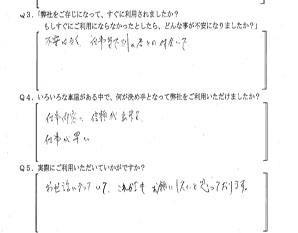 Q3．「弊社をご存じになって、すぐに利用されましたか？
もしすぐにご利用にならなかったとしたら、どんな事が不安になりましたか？」
不安はなく
Q4．いろいろな車屋がある中で、何が決め手となって弊社をご利用いただけましたか？
仕事内容に信頼が出来る
仕事が早い
Q5．実際にご利用いただいていかがですか？
お世話になっていて、これからもお願いしたいと思っております。